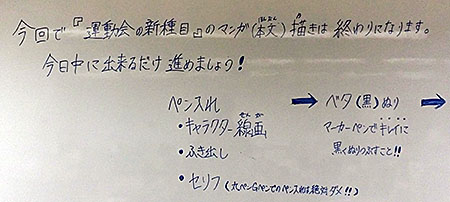 今回で『運動会の新種目』のマンガ(本文)描きは 終わりになります。
今日中に出来るだけ 進めましょう!
ペン入れ → ベタ(黒)ぬり →
・キャラクター線画
・ふき出し
・セリフ(丸ペンGペンでのペン入れは絶対ダメ!!)
マーカーペンでキレイに
黒くぬりつぶすこと!!